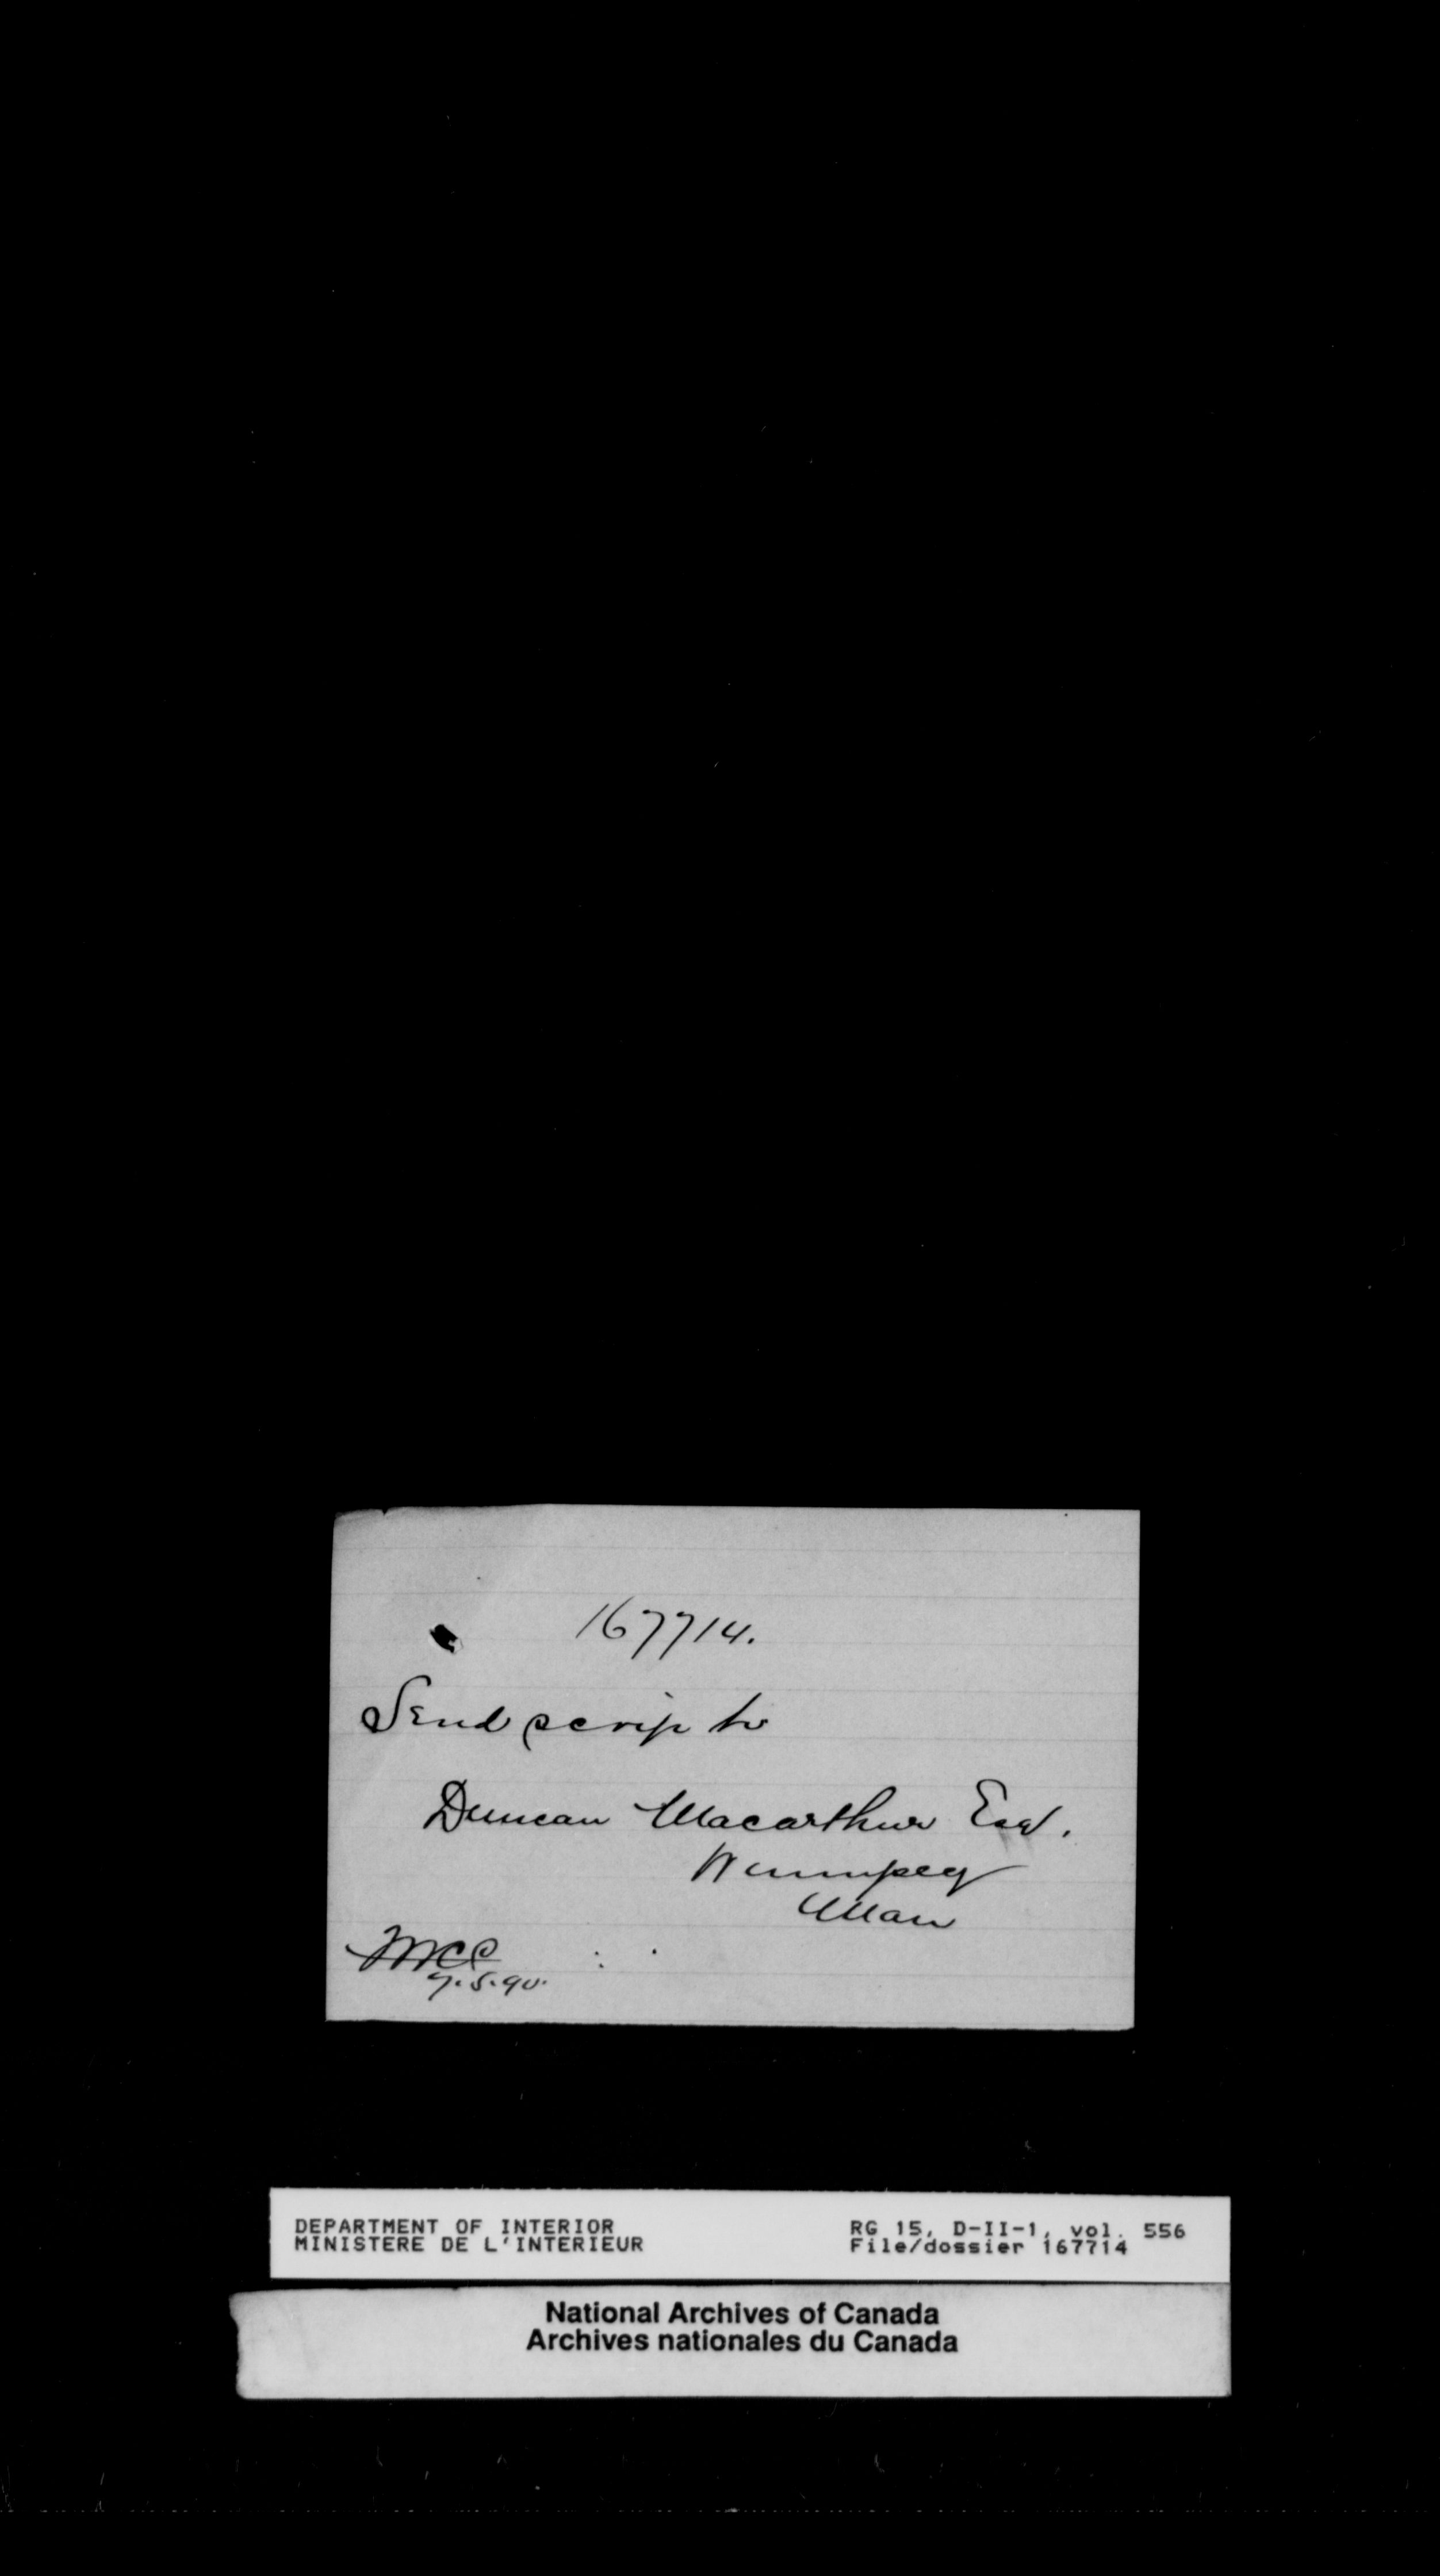 167714.
Send scrip to
Duncan Macarthur Esq.
Winnipeg
Man
7.5.90.
DEPARTMENT OF INTERIOR
MINISTERE DE L'INTERIEUR
RG 15, D-II-1, vol. 556
File/dossier 167714
National Archives of Canada
Archives nationales du Canada